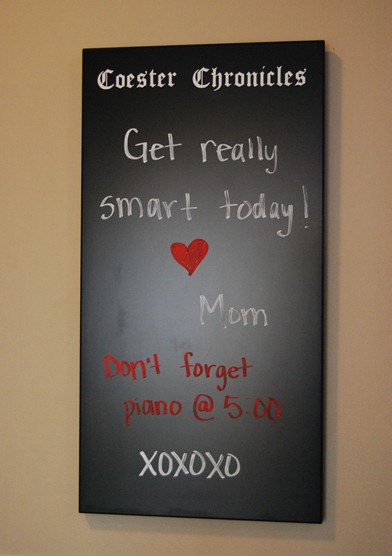 Coester Chronicles
Get really
smart today!
Mom
Don't forget
piano @ 5:00
XOXOXO